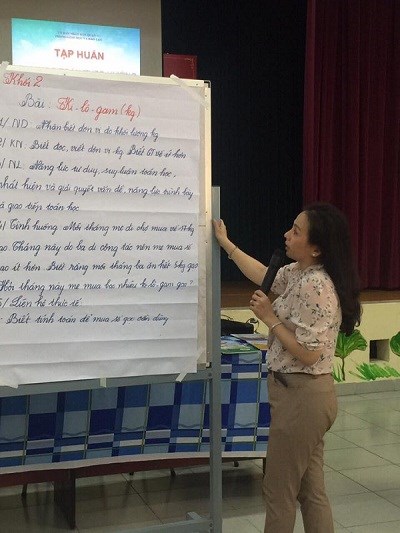 TẬP HUẤN
Khối 2
Bài: Ki-lô-gam (kg)
1/ ND: Nhận biết đơn vị đo khối lượng kg
2/ KN: Biết đọc, viết đơn vị kg. Biết
3/ NL: Năng lực tư duy, suy luận toán học,
phát hiện và giải quyết vấn đề, năng lực trình bày
và giao tiếp toán học.
4/ Tình huống: Mỗi tháng mẹ đi chợ mua về
gạo. Tháng này do ba đi công tác nên mẹ mua số
gạo ít hơn. Biết rằng mỗi tháng ba ăn hết 5kg gạo
Hỏi tháng này mẹ mua bao nhiêu ki-lô-gam gạo?
5/ Liên hệ thực tế:
- Biết tính toán để mua số gạo cần dùng